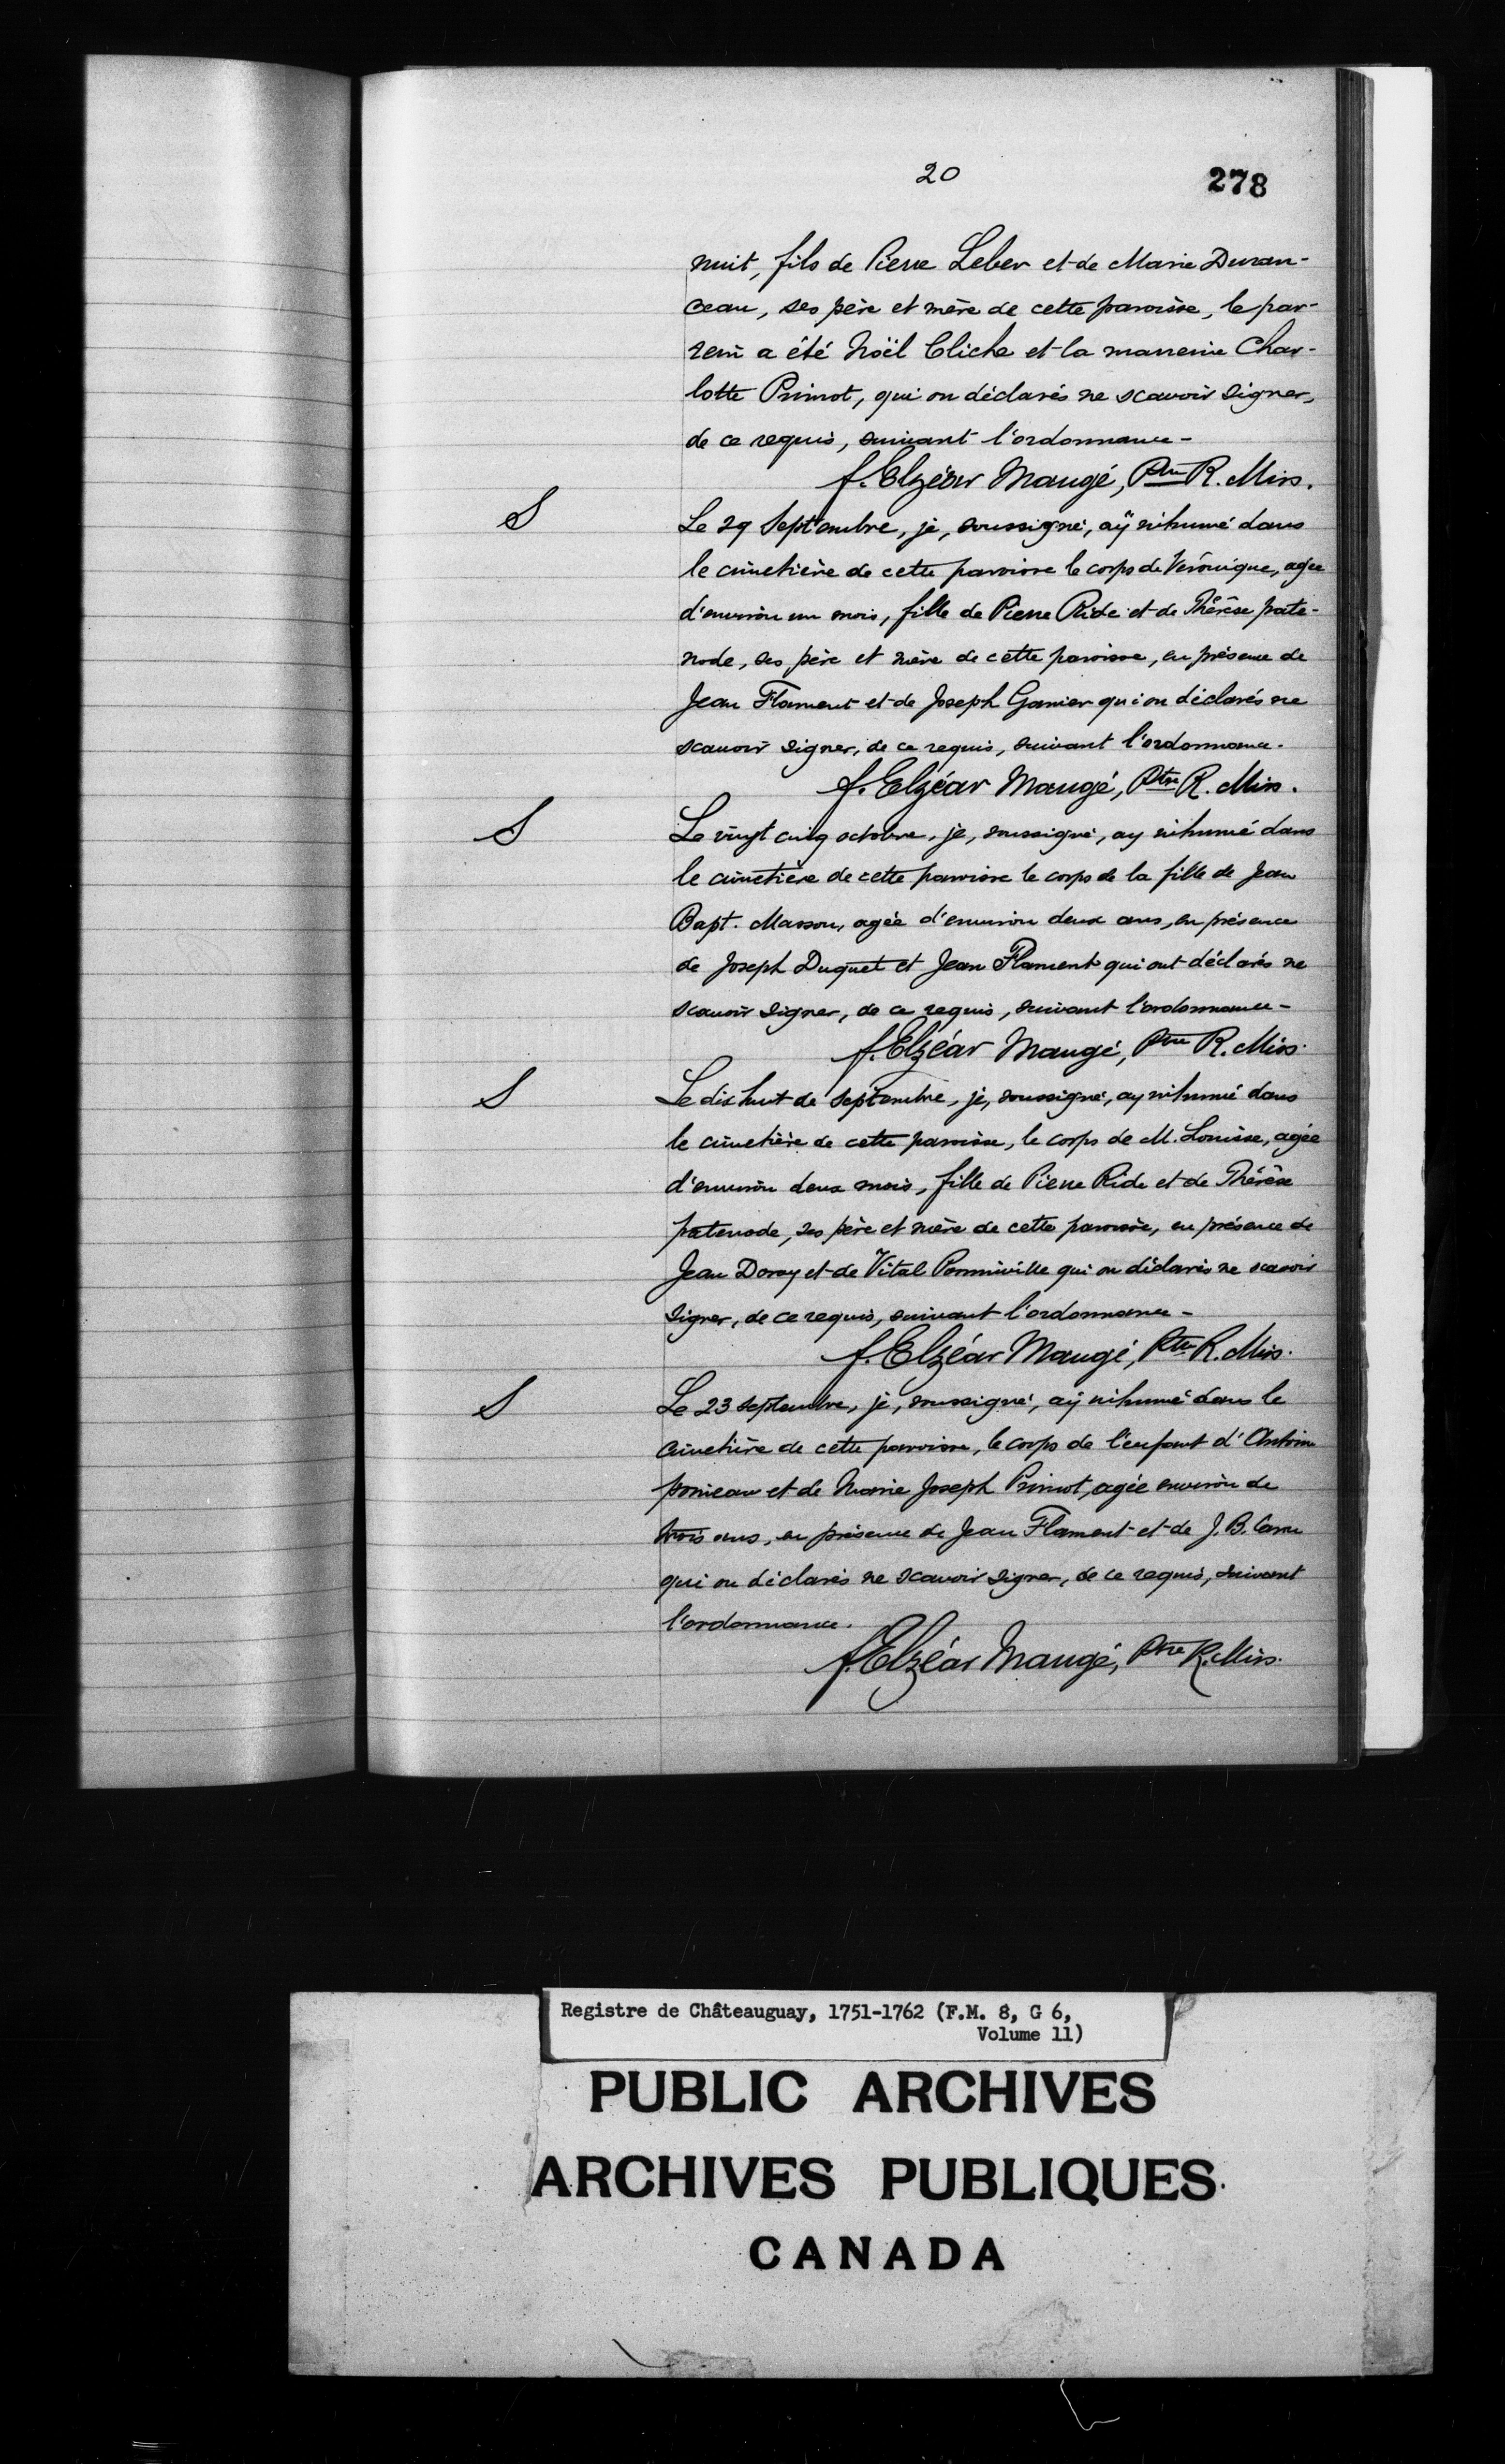 20
278
nuit, fils de Pierre Leber et de Marie Duran-
ceau, ses père et mère de cette paroisse, le par-
rein a été Noël Cliche et la marreine Char-
lotte Primot, qui on déclarés ne scavoir signer,
de ce requis, suivant l'ordonnance -
f. Elzéar Maugé, Ptre R. Miss.
S
Le 29 Septembre, je, soussigné, aÿ inhumé dans
le cimetière de cette paroisse le corps de Véronique, agée
d'environ un mois, fille de Pierre Ride et de Thérèse pate-
node, ses père et mère de cette paroisse, en présence de
Jean Flament et de Joseph Ganier qui on déclarés ne
scauoir signer, de ce requis, suivant l'ordonnance.
f. Elzéar Maugé, Ptre R. Miss.
S
Le vingt cinq octobre, je, soussigné, ay inhumé dans
le cimetière de cette paroisse le corps de la fille de Jean
Bapt. Masson, agée d'environ deux ans, en présence
de Joseph Duquet et Jean Flament qui ont déclarés ne
scauoir signer, de ce requis, suivant l'ordonnance -
f. Elzéar Maugé, Ptre R. Miss.
S
Le dix huit de Septembre, je, soussigné, ay inhumé dans
le cimetière de cette paroisse, le corps de M. Louisse, agée
d'environ deux mois, fille de Pierre Ride et de Thérèse
patenode, ses père et mère de cette paroisse, en présence de
Jean Doray et de Vital Pominville qui on déclarés ne scavoir
signer, de ce requis, suivant l'ordonnance -
f. Elzéar Maugé, Ptre R. Miss.
S
Le 23 septembre, je, soussigné, aÿ inhumé dans le
cimetière de cette paroisse, le corps de l'enfant d'Antoine
et de Marie Joseph Primot, agée environ de
trois ans, en présence de Jean Flament et de J. B.
qui on déclarés ne scauoir signer, de ce requis, suivant
l'ordonnance.
f. Elzéar Maugé, Ptre R. Miss.
Registre de Châteauguay, 1751-1762 (F.M. 8, G 6,
Volume 11)
PUBLIC ARCHIVES
ARCHIVES PUBLIQUES
CANADA